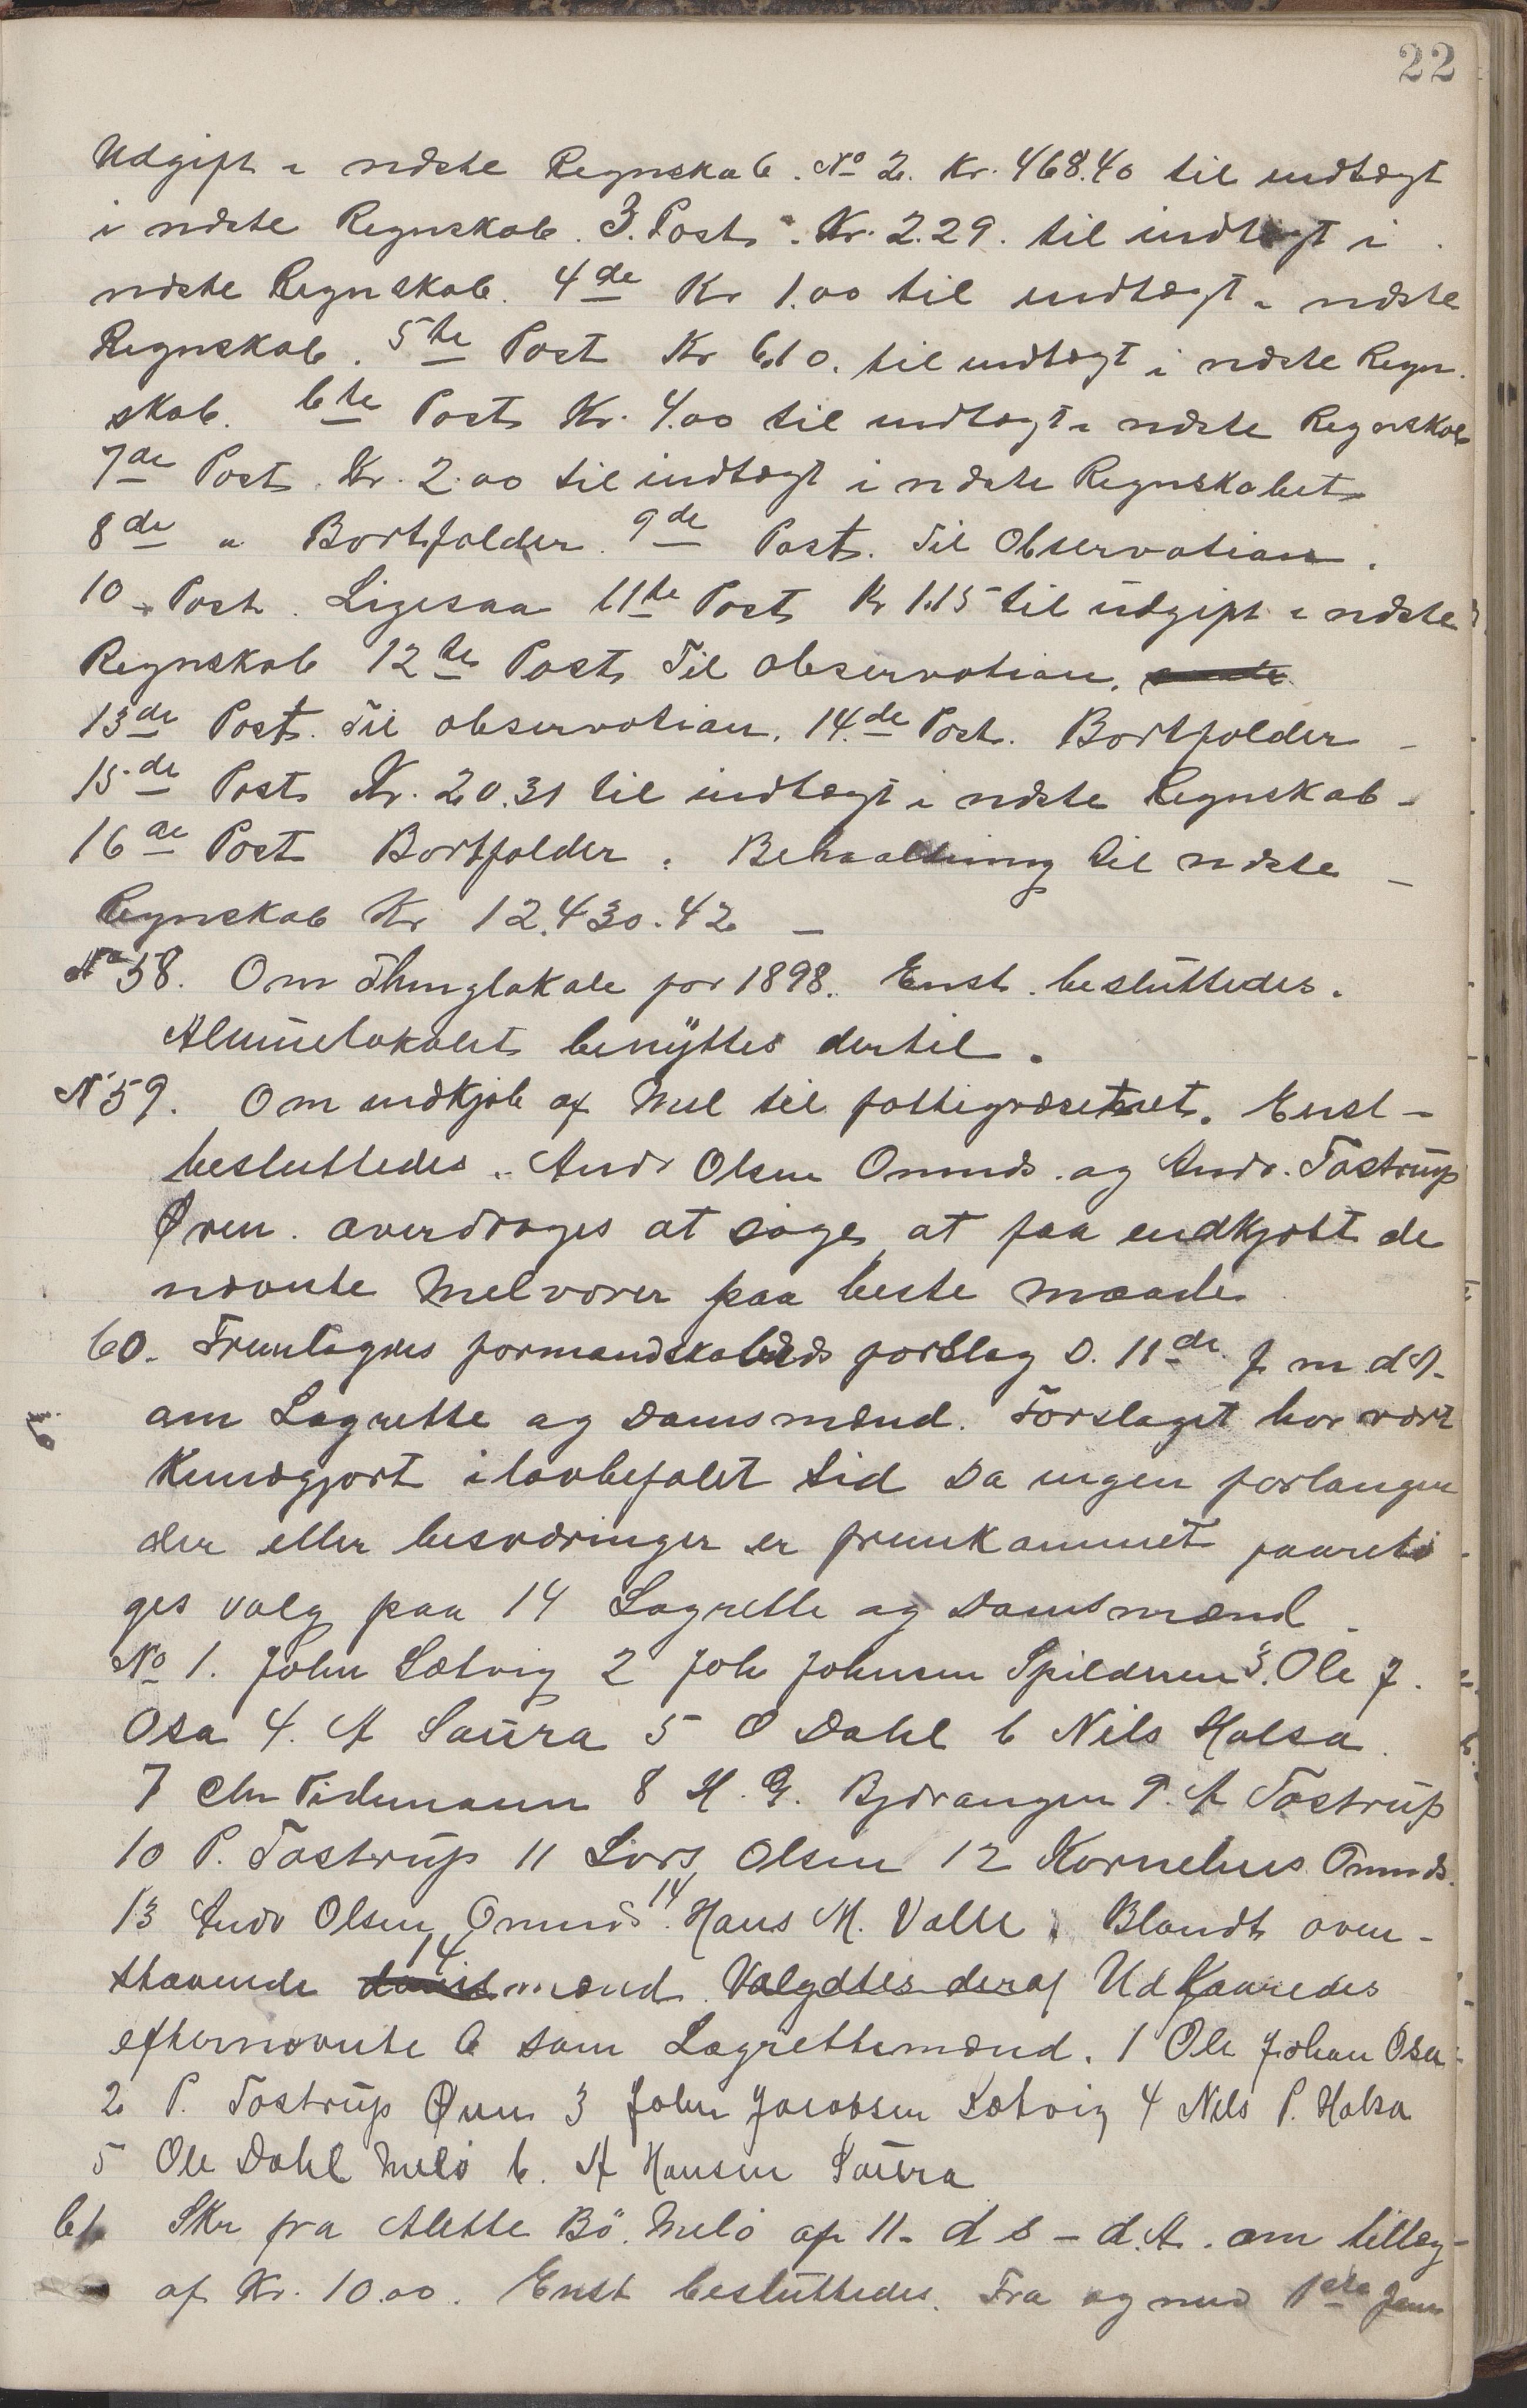 22
Udgift i næste Regnskab. No 2. Kr. 468.40 til indtægt
i næste Regnskab. 3. Post. Kr. 2.29. til indtægt i
næste Regnskab. 4de Kr 1.00 til indtægt i næste
Regnskab. 5te Post Kr 6.10. til indtægt i næste Regn-
skab. 6te Post Kr. 4.00 til indtægt i næste Regnskab
7de Post. Kr. 2.00 til indtægt i næste Regnskabet
8de " Bortfalder. 9de Post. Til Observation.
10 - Post. Ligesaa 11te Post Kr 1.15 til udgift i næste
Regnskab 12te Post Til observation.
13de Post. Til observation. 14.de Post. Bortfalder -
15.de Post Kr. 20.31 til indtægt i næste Regnskab -
16de Post Bortfalder. Behaaldning til næste -
Regnskab Kr 12.430.42 -
No 58. Om Thinglokale for 1898. Enst. besluttedes.
Almuelokalet benyttes dertil.
N 59. Om indkjøb af Mel til fattigvæsenet. Enst -
besluttedes. Andr Olsen Ønnes. og Andr. Tostrup
Øren. overdrages at søge at faa indkjøbt de
nævnte Melvarer paa beste maade
60. Fremlagdes formandskabets forslag D. 11de f m d A.
om Lagrette og Domsmænd. Forslaget har vært
Kundgjort i lovbefalet tid Da ingen forlangen
der eller besværinger er fremkommet foareto
ges valg paa 14 Lagrette og Domsmænd.
No 1. John Sætvig 2 Joh Johnsen Spilderen 3. Ole J.
Osa 4. A Saura 5 O Dahl 6 Nils Halsa.
7 Chr Tidemann 8 H. G. Bjærangen 9. A Tostrup
10 P. Tostrup 11 Lars Olsen 12 Kornelius Ønnes.
13 Andr Olsen Ønnes. 14 Hans M. Valle. Blandt oven -
staaende 14 mænd. Valgdtes deraf Udkaaredes
efternævnte 6 som Lagrettemænd. 1 Ole Johan Osa -
2 P. Tostrup Ørn 3 John Jacobsen Sætvig 4 Nils P. Halsa
5 Ole Dahl Melø 6. A Hansen Saura
61 Skr fra Alette Bö. Melø af 11- d s - d.A. om tillæg -
af Kr. 10.00. Enst besluttedes. Fra og med 1ste Jan